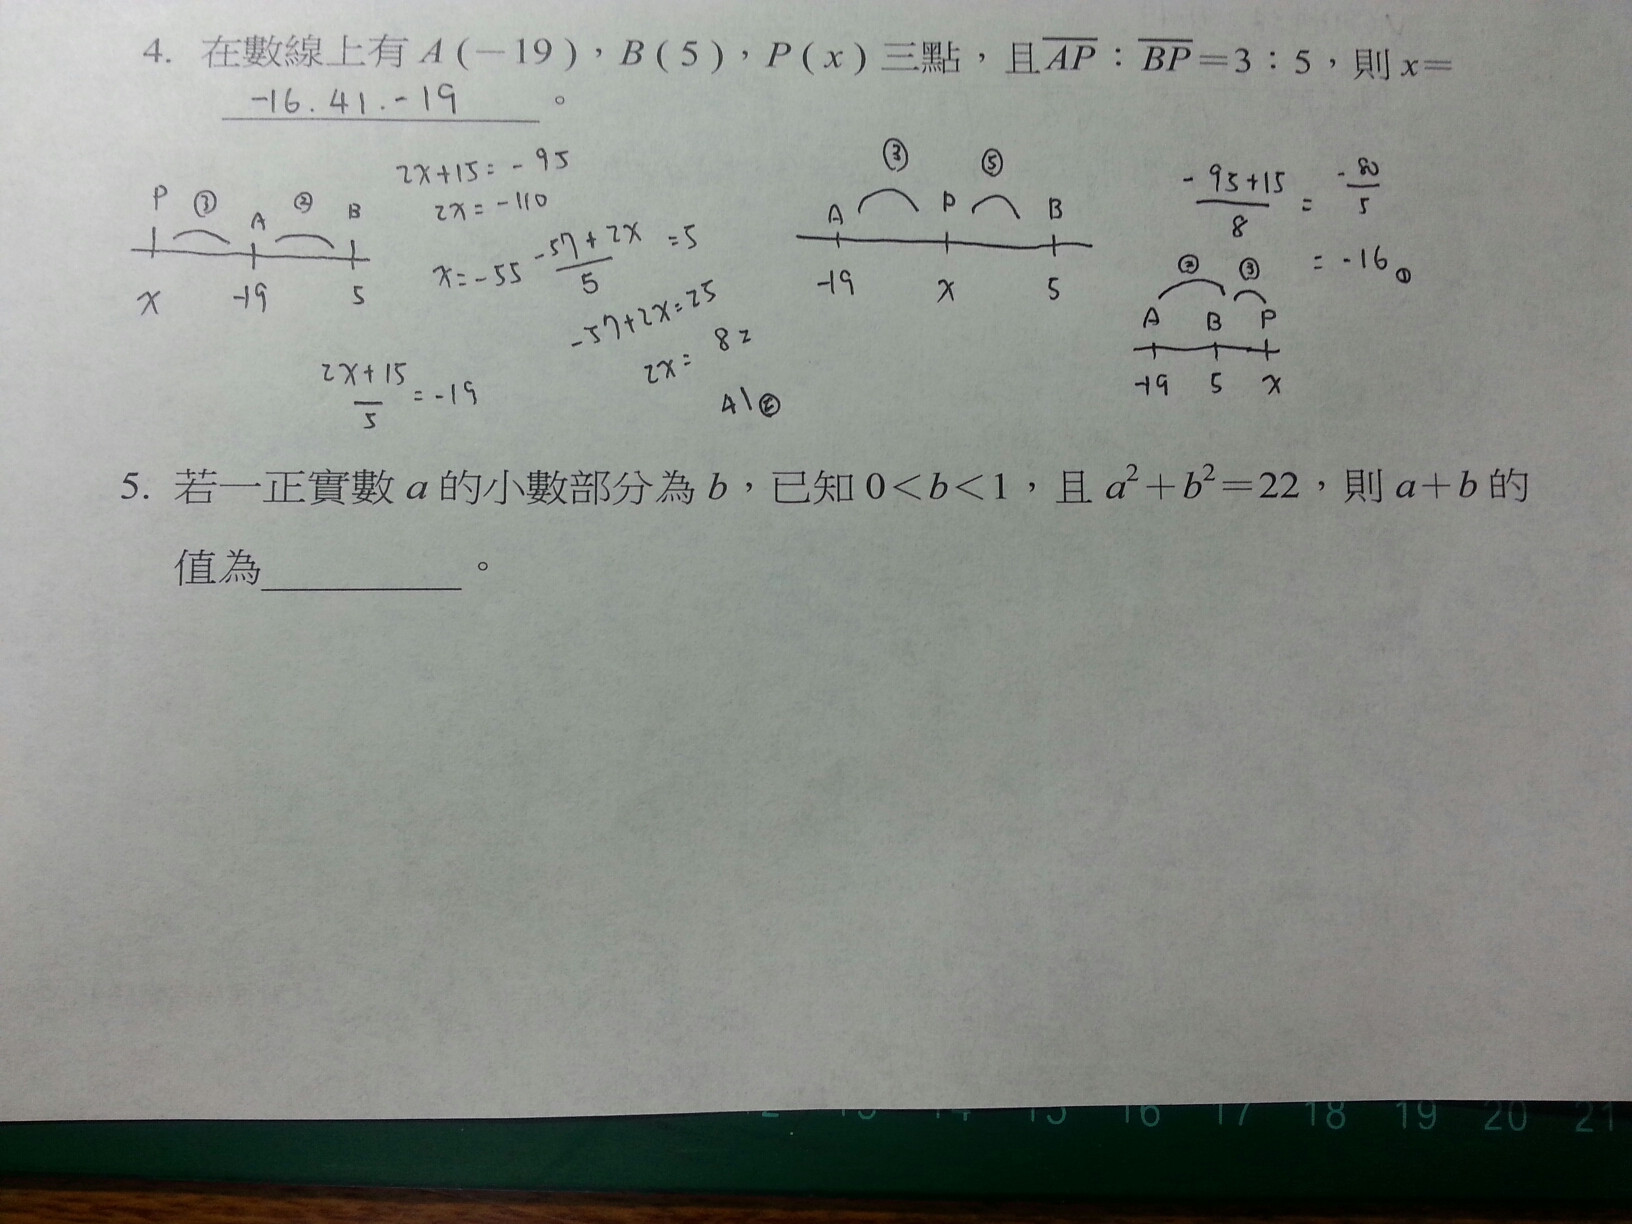 4. 在數線上有 A(-19),B(5),P(x) 三點,且 AP:BP=3:5,則 x=
-16.41.-19 。
P ③ A ② B
x -19 5
2x+15=-95
2x=-110
x=-55
2x+15
5
=-19
-57+2x
5
=5
-57+2x=25
2x= 82
41②
③ ⑤
A P B
-19 x 5
-95+15
8
=
-80
5
=-16①
② ③
A B P
-19 5 x
5. 若一正實數 a 的小數部分為 b,已知 0<b<1,且 a²+b²=22,則 a+b 的
值為________。
16 17 18 19 20 21